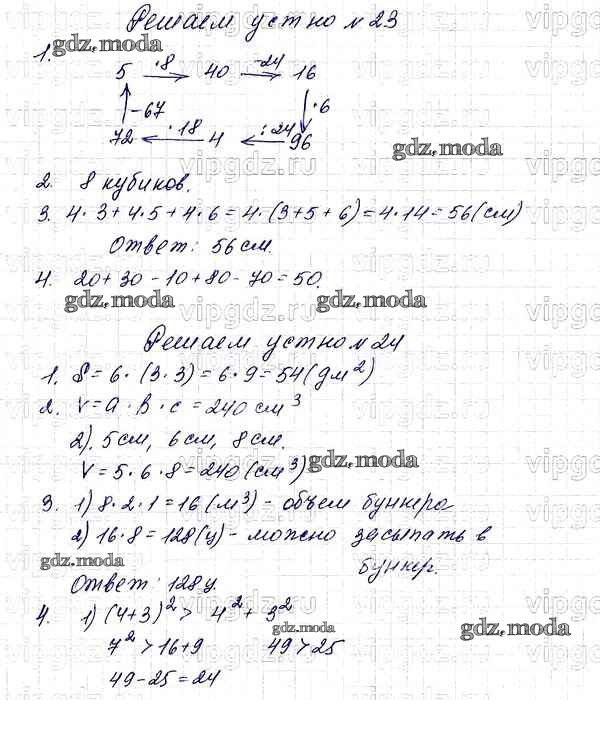 Решаем устно №23
1.
5 ·8 40 -24 16
-67 ·6
72 ·18 4 :24 96
2. 8 кубиков.
3. 4·3+4·5+4·6=4·(3+5+6)=4·14=56(см)
Ответ: 56 см.
4. 20+30-10+80-70=50.
Решаем устно №24
1. S=6·(3·3)=6·9=54(дм²)
2. V=a·в·c=240 см³
2). 5см, 6см, 8см.
V=5·6·8=240(см³)
3. 1) 8·2·1=16(м³) - объем бункера
2) 16·8=128(ц) - можно засыпать в
бункер.
Ответ: 128ц
4. 1) (4+3)²> 4²+3²
7²>16+9 49>25
49-25=24
gdz.moda
gdz.moda
gdz.moda
gdz.moda
gdz.moda
gdz.moda
gdz.moda
gdz.moda